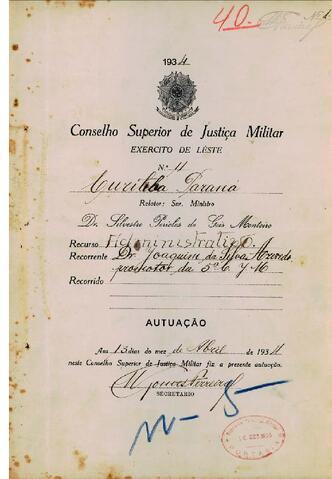 40.
1934
Conselho Superior de Justiça Militar
EXERCITO DE LÉSTE
N.º 11
Curitiba Paraná
Relator: Snr. Ministro
Dr. Silvestre Péricles de Góis Monteiro
Recurso Administrativo.
Recorrente Dr. Joaquim da Silva Azevedo
promotor da 5ª C. J. M.
Recorrido
AUTUAÇÃO
Aos 13 dias do mez de Abril de 1934
neste Conselho Superior de Justiça Militar fiz a presente autuação.
SECRETARIO